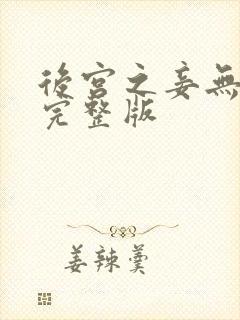 後宮之妾無
完整版
姜辣羹